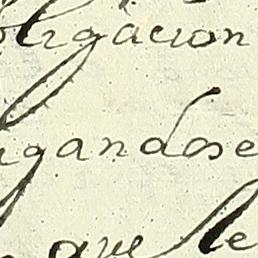 bligacion
gandose
que le